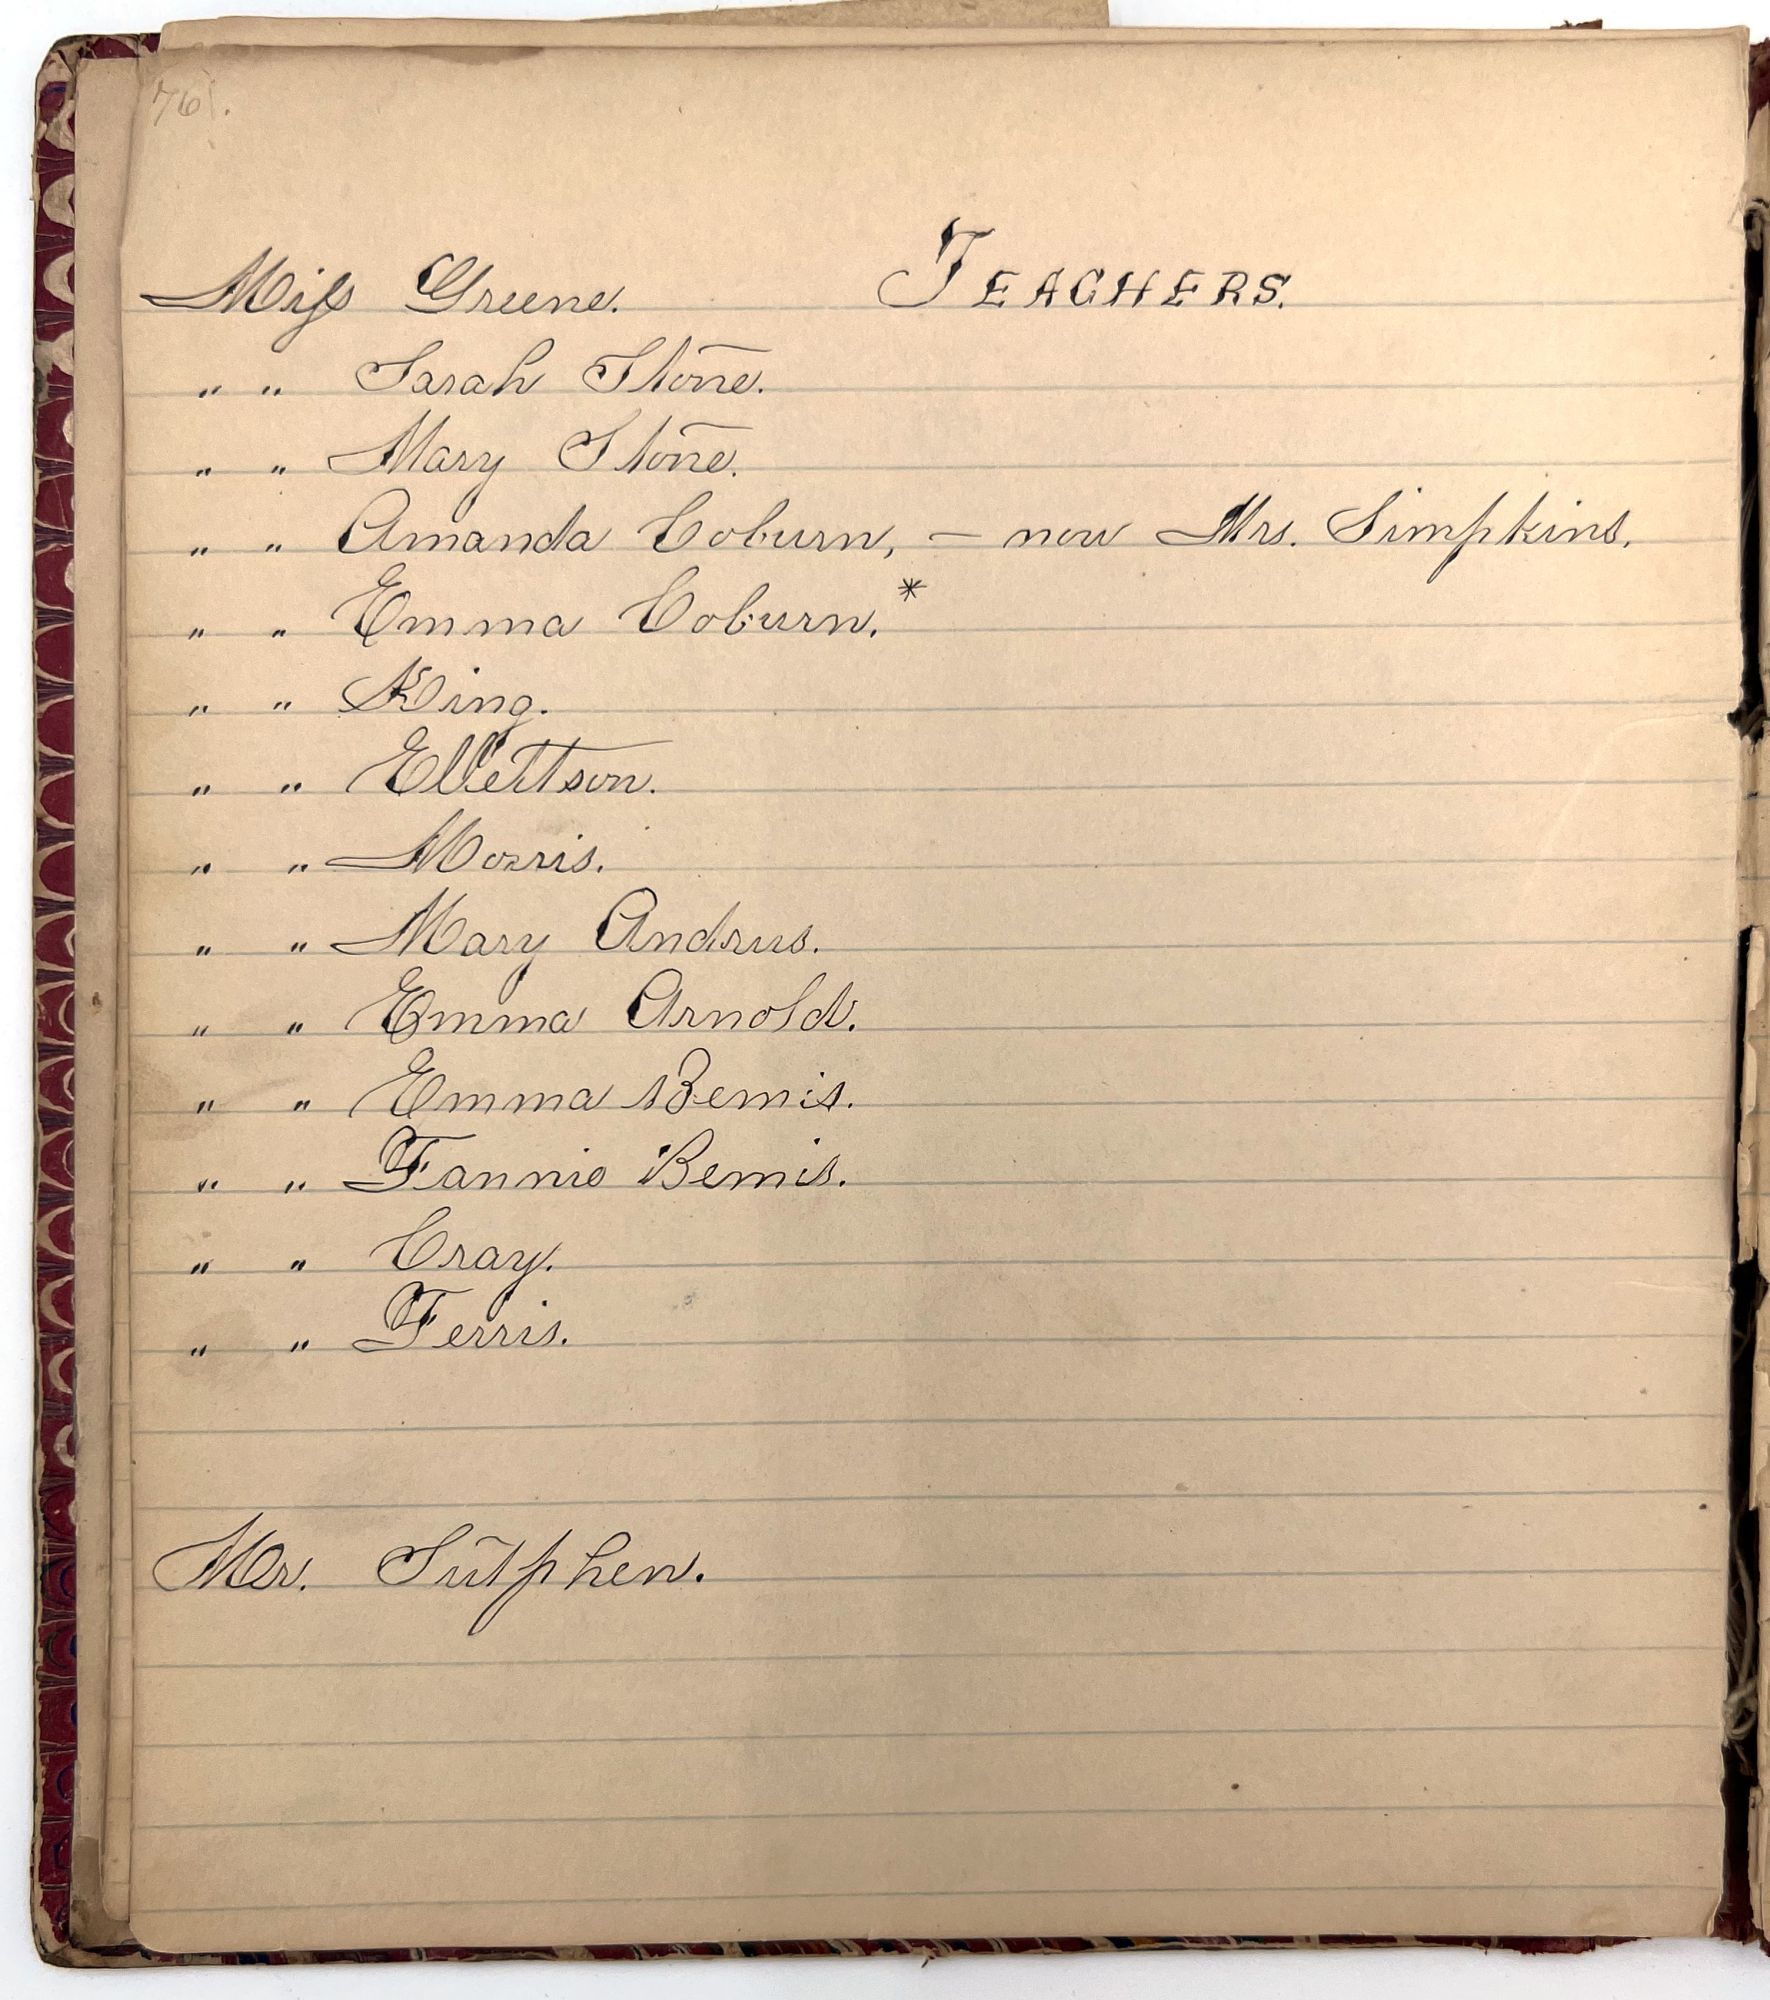 76.
TEACHERS.
Miss Greene.
" " Sarah Stone.
" " Mary Stone.
" " Amanda Coburn, — now Mrs. Simpkins.
" " Emma Coburn.*
" " King.
" " Ellettson.
" " Morris.
" " Mary Andrus.
" " Emma Arnold.
" " Emma Bemis.
" " Fannie Bemis.
" " Cray.
" " Ferris.
Mr. Sutphen.